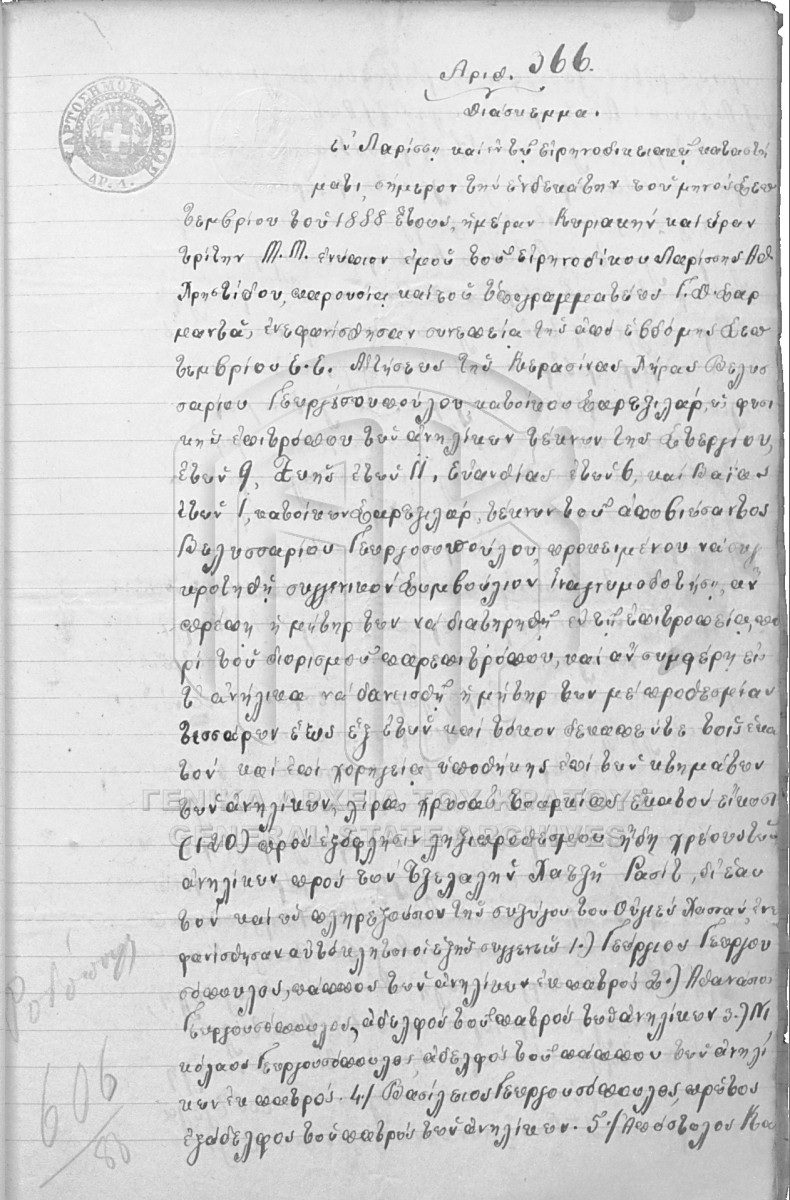 ΧΑΡΤΟΣΗΜΟΝ ΤΑΚΤΙΚΟΝ
ΔΡ. 1.
Αριθ. 366.
Διάσκεμμα.
Εν Λαρίσση και εν τω ειρηνοδικειακώ καταστή
ματι, σήμερον την ενδεκάτην του μηνός Σεπ
τεμβρίου του 1888 έτους, ημέραν Κυριακήν και ώραν
τρίτην Μ.Μ. ενώπιον εμού του ειρηνοδίκου Λαρίσσης Αθ.
Χρηστίδου, παρουσία και του υπογραμματέως Γ.
ενεφανίσθησαν συνεπεία της από εβδόμης Σεπ
τεμβρίου ε.ε. Αιτήσεως της Κερασίνας χήρας Βελισ
σαρίου Γεωργουσοπούλου, κατοίκου ως φυσι
κής επιτρόπου των ανηλίκων τέκνων της Στεργίου,
ετών 9, Ζωής ετών 11, Ευανθίας ετών 6, και Βαΐας
ετών 1, κατοίκων τέκνων του αποβιώσαντος
Βελυσσαρίου Γεωργουσοπούλου, προκειμένου να συγ
κροτηθή συγγενικόν Συμβούλιον ίνα γνωμοδοτήση, αν
πρέπη η μήτηρ των να διατηρηθή εν τη επιτροπεία, πε
ρί του διορισμού παρεπιτρόπου, και αν συμφέρη εις
τ' ανήλικα να δανεισθή η μήτηρ των με προθεσμίαν
τεσσάρων έως εξ ετών και τόκον δεκαπέντε τοις εκα
τόν και επί χορηγεία υποθήκης επί των κτημάτων
των ανηλίκων, λίρας χρυσάς εκατόν είκοσι
(120) προς εξόφλησιν ληξιπροθέσμου ήδη χρέους των
ανηλίκων προς τον Τζελαλήν Χατζή Ρασίτ, δι' εαυ
τόν και ως πληρεξούσιον της συζύγου του ενε
φανίσθησαν αυτόκλητοι οι εξής συγγενείς 1.) Γεώργιος Γεωργου
σόπουλος, πάππος των ανηλίκων εκ πατρός 2.) Αθανάσιος
Γεωργουσόπουλος, αδελφός του πατρός των ανηλίκων 3.) Νι
κόλαος Γεωργουσόπουλος αδελφός του πάππου των ανηλί
κων εκ πατρός. 4.) Βασίλειος Γεωργουσόπουλος, πρώτος
εξάδελφος του πατρός των ανηλίκων. 5.) Απόστολος Κα
606
80
ΓΕΝΙΚΑ ΑΡΧΕΙΑ ΤΟΥ ΚΡΑΤΟΥΣ
CENTRAL STATE ARCHIVES